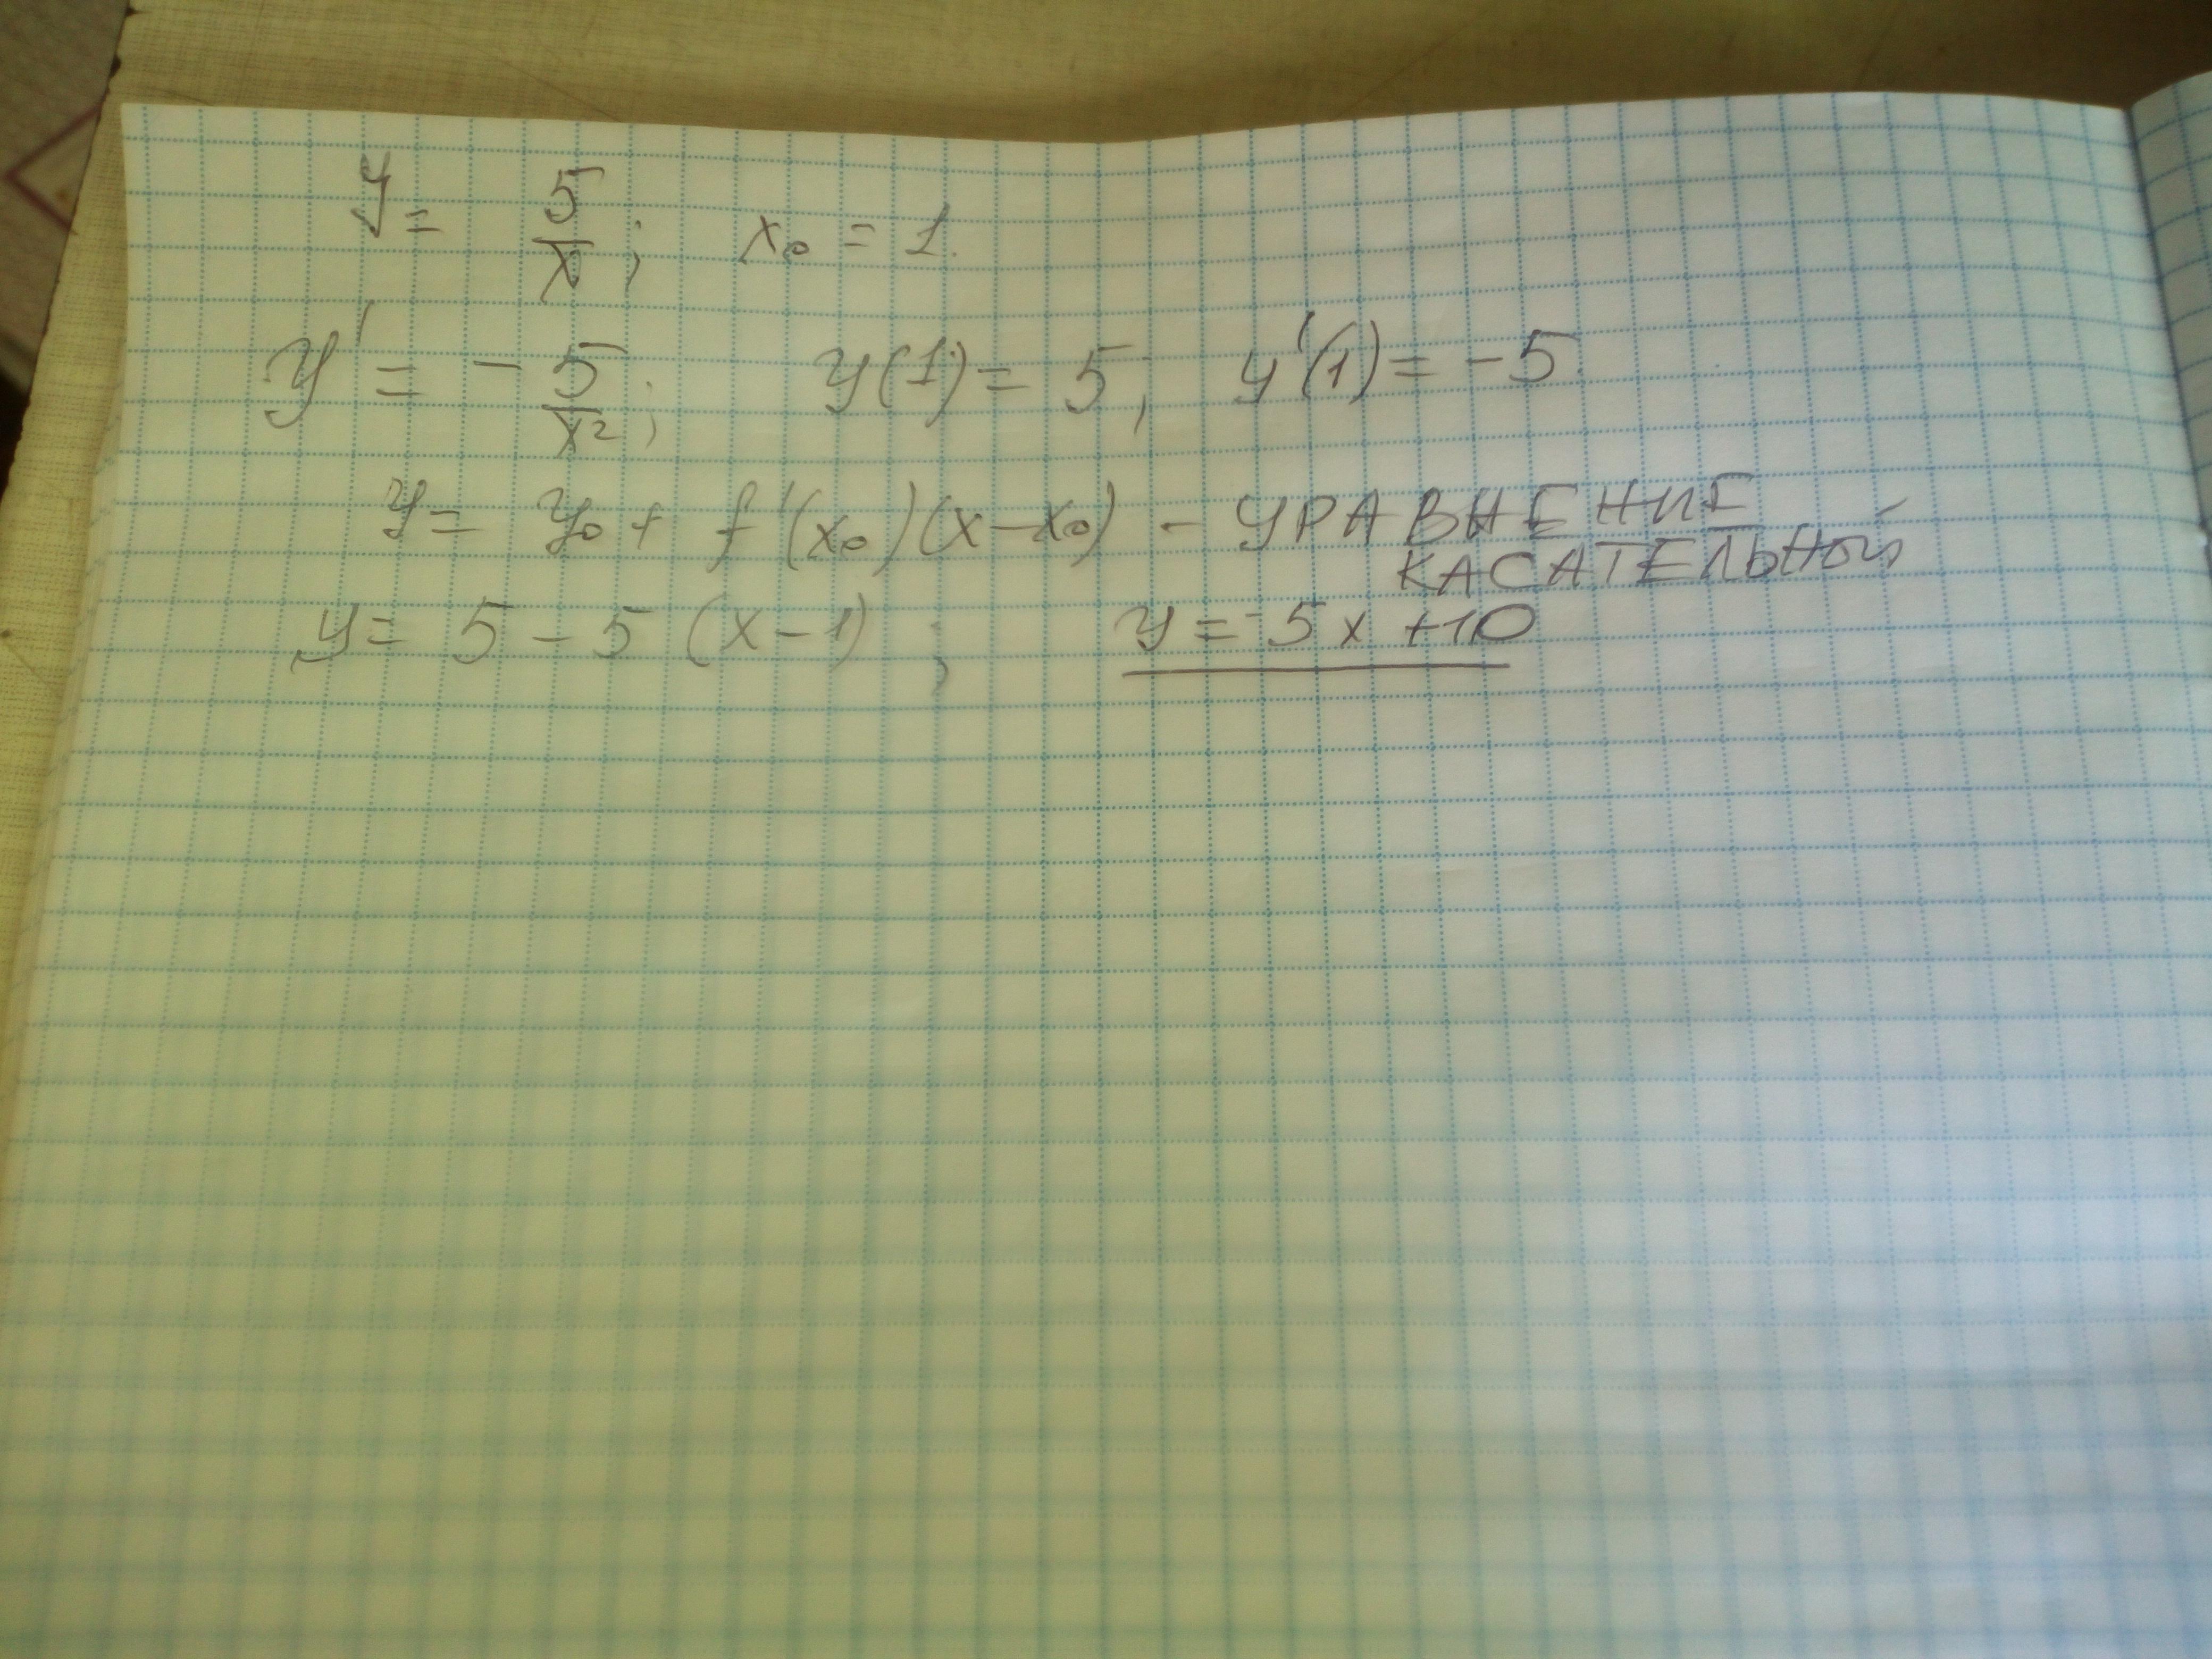 y = 5/x; x₀ = 1.
y' = -5/x²; y(1) = 5, y'(1) = -5.
y = y₀ + f'(x₀)(x-x₀) - УРАВНЕНИЕ
КАСАТЕЛЬНОЙ
y = 5 - 5 (x-1); y = -5x +10